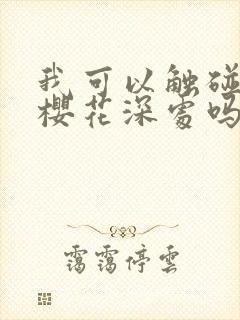 我可以触碰
樱花深处吗
霭霭停雲